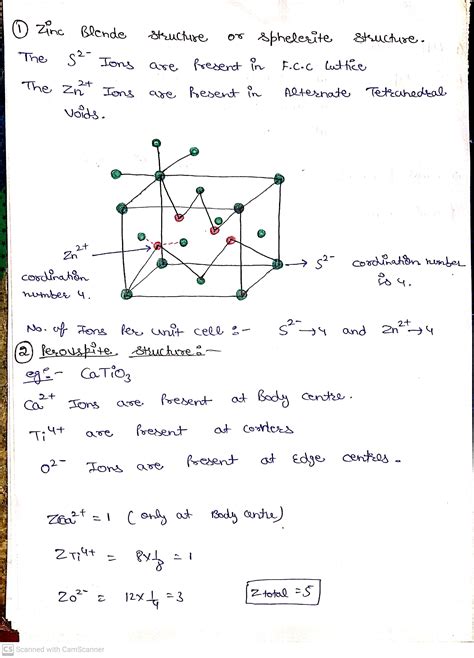 ① Zinc Blende structure or sphelerite structure.
The S²⁻ Ions are Present in F.C.C Lattice
The Zn²⁺ Ions are Present in Alternate Tetrahedral
Voids.
Zn²⁺
coordination
number 4.
S²⁻ coordination number
is 4.
No. of Ions Per unit cell :- S²⁻→4 and Zn²⁺→4
② Perovspite structure :-
eg :- CaTiO₃
Ca²⁺ Ions are Present at Body centre.
Ti⁴⁺ are Present at corners
O²⁻ Ions are Present at Edge centres.
ZCa²⁺ = 1 (only at Body centre)
ZTi⁴⁺ = 8×1/8 = 1
ZO²⁻ = 12×1/4 = 3
Z total = 5
CS Scanned with CamScanner